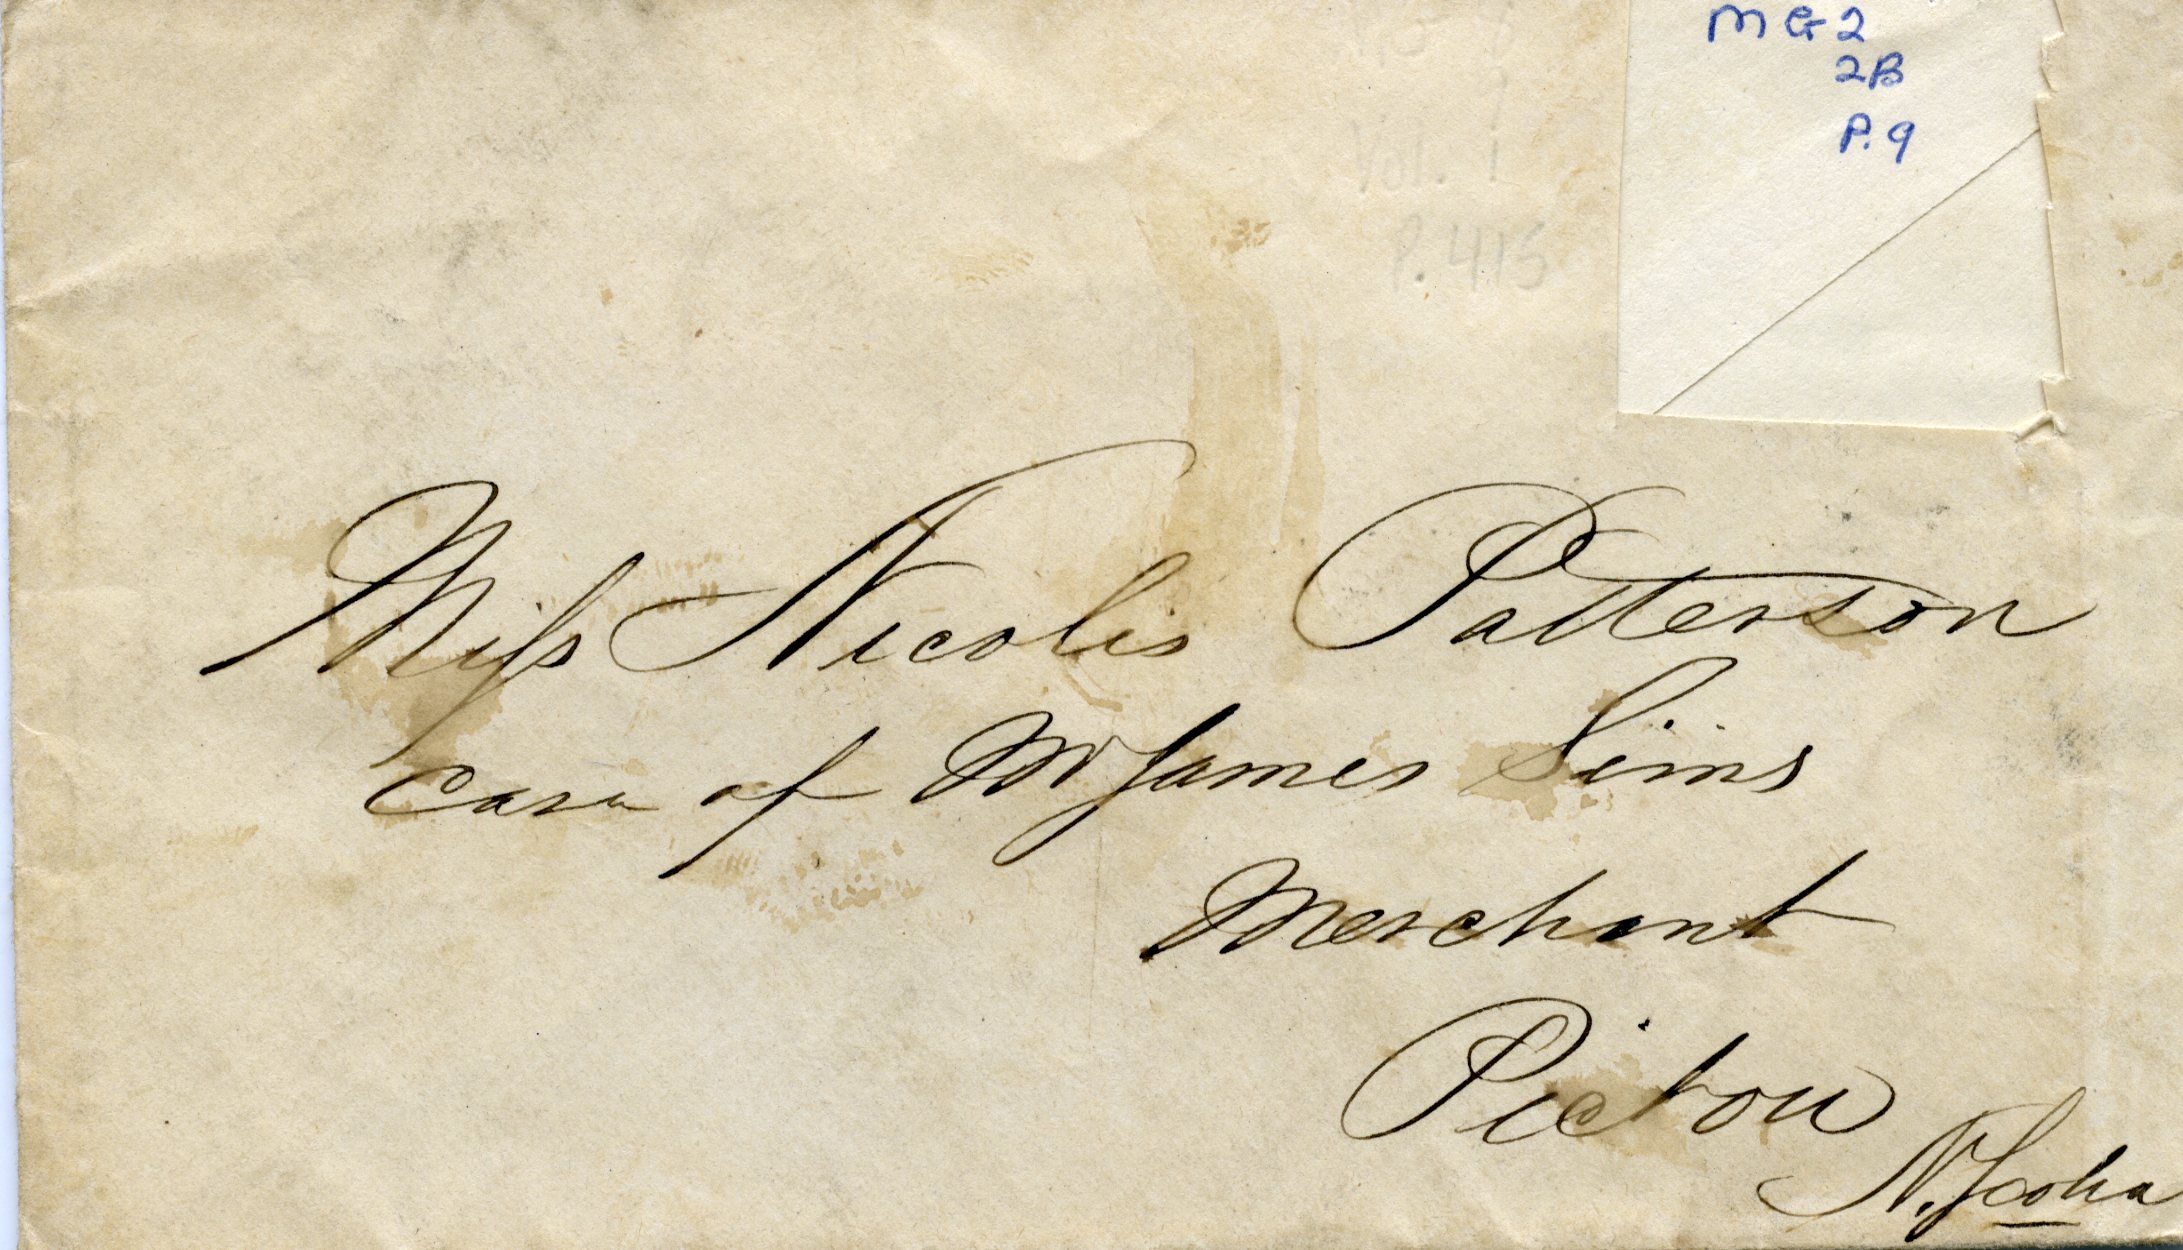 MG2
2B
P. 9
Vol. 1
P. 415
Miſs Nicolis Patterson
Care of Mr James Sims
Merchant
Pictou
N. Scotia